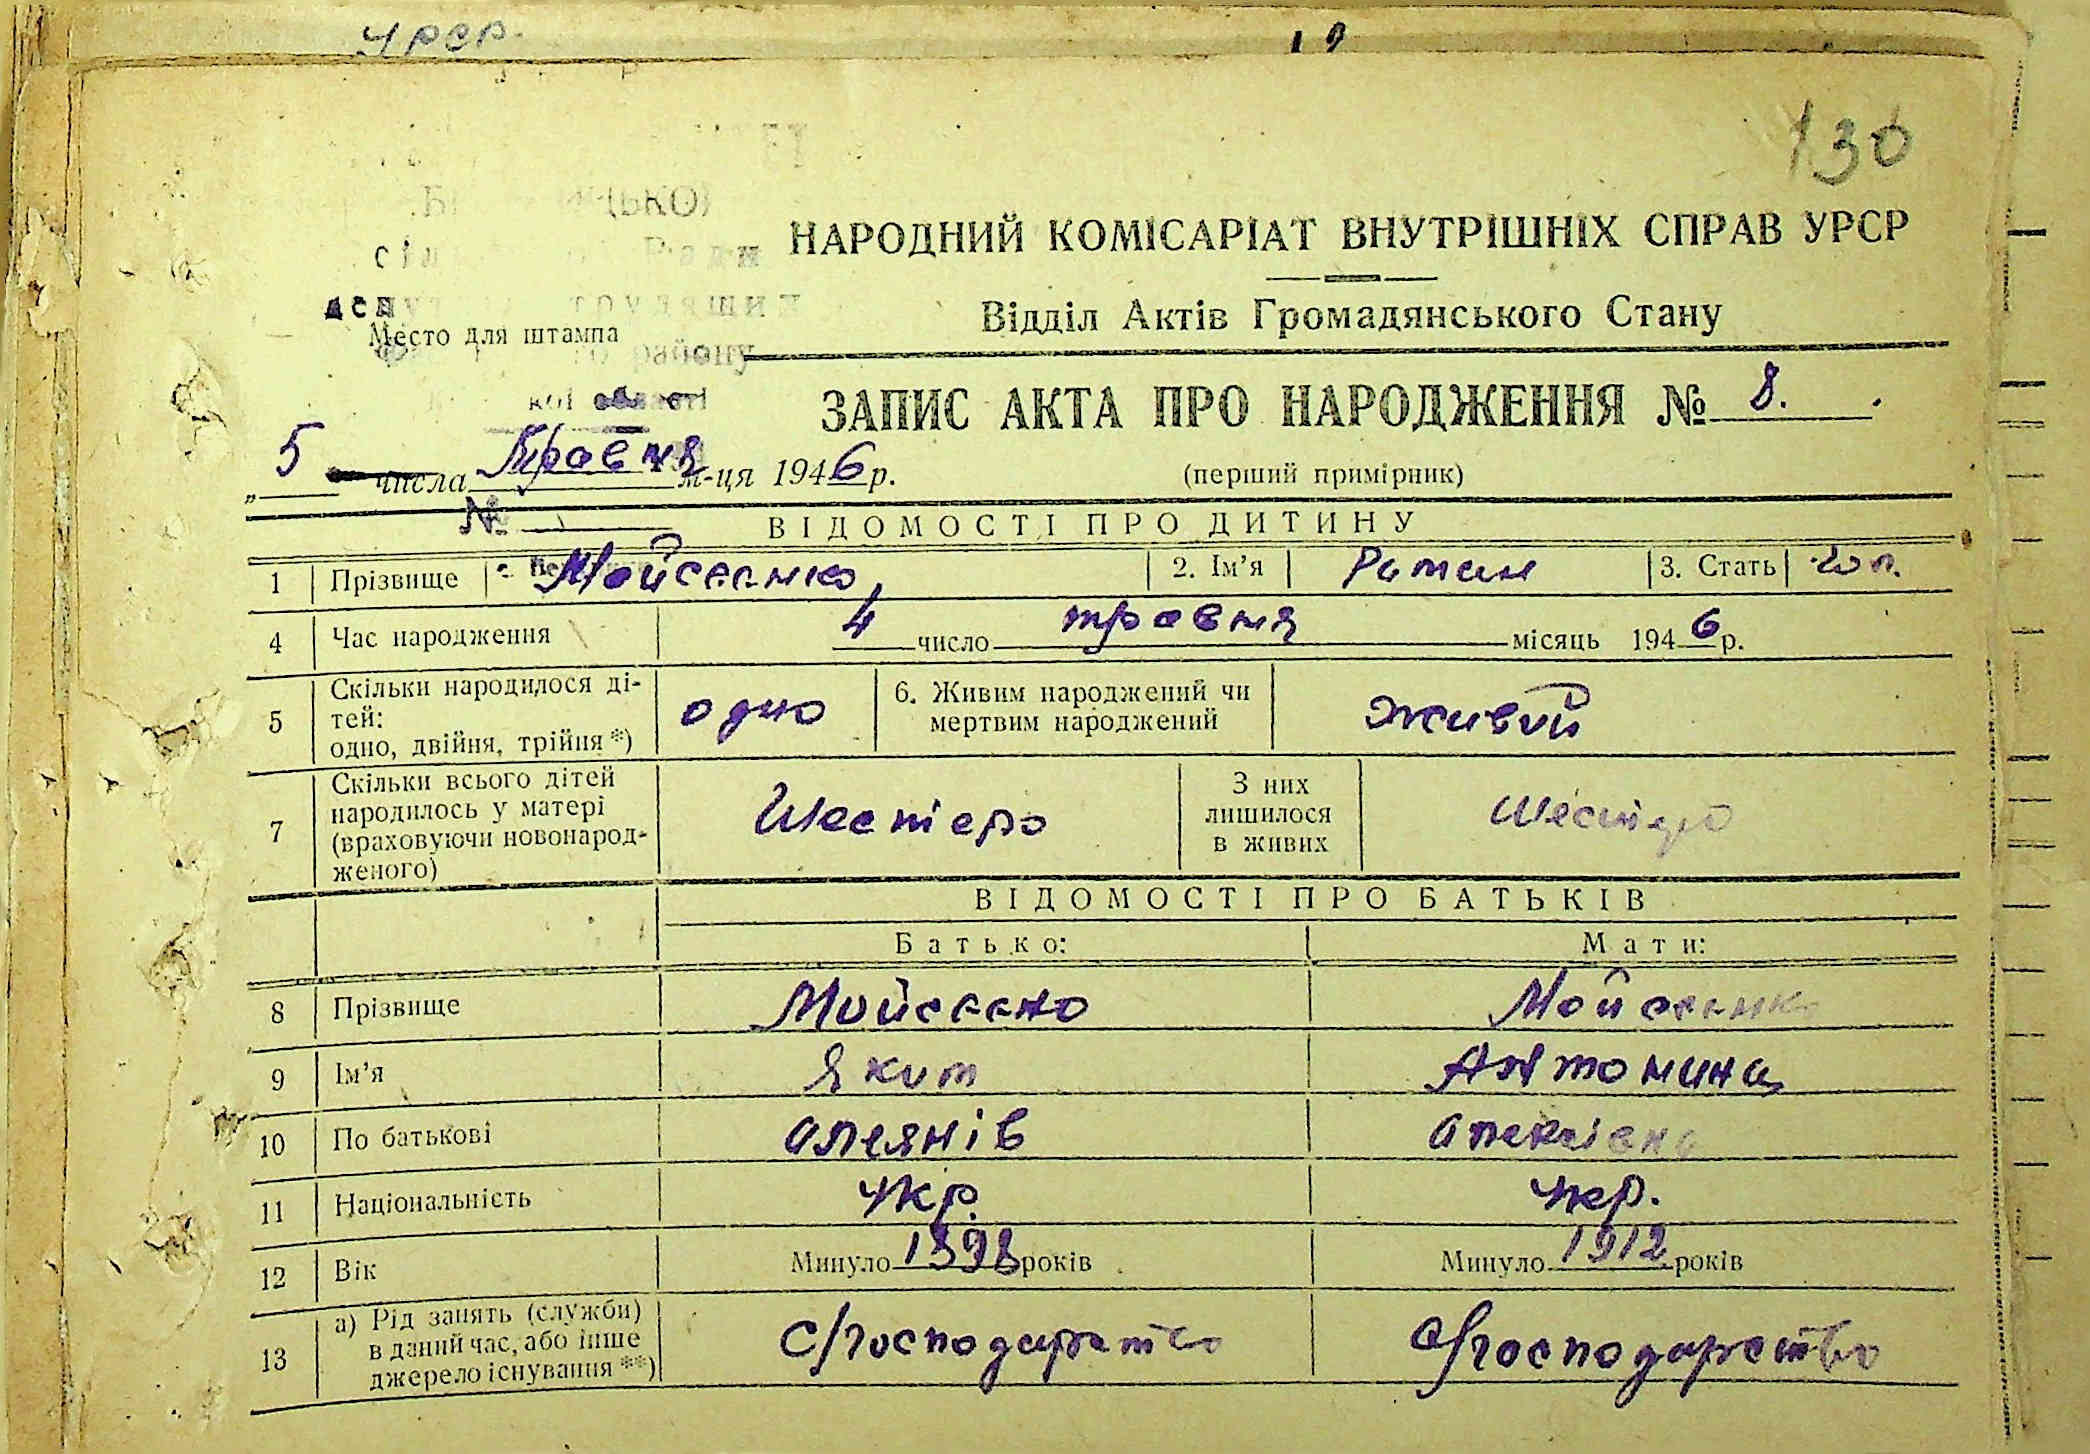 УРСР.
19
130
НАРОДНИЙ КОМІСАРІАТ ВНУТРІШНІХ СПРАВ УРСР
Відділ Актів Громадянського Стану
Место для штампа
району
кої області
ЗАПИС АКТА ПРО НАРОДЖЕННЯ № 8.
(перший примірник)
„5 числа Травня м-ця 1946 р.
№
ВІДОМОСТІ ПРО ДИТИНУ
1 Прізвище Мойсеєнко, 2. Ім'я Роман 3. Стать чол.
4 Час народження 4 число травня місяць 1946 р.
5 Скільки народилося ді-
тей:
одно, двійня, трійня*) одно 6. Живим народжений чи
мертвим народжений живий
7 Скільки всього дітей
народилось у матері
(враховуючи новонарод-
женого) Шестеро З них
лишилося
в живих шестеро
ВІДОМОСТІ ПРО БАТЬКІВ
Батько: Мати:
8 Прізвище Мойсеєнко Мойсеєнко
9 Ім'я Яким Антонина
10 По батькові Олексіївна
11 Національність Укр. Укр.
12 Вік Минуло 1898 років Минуло 1912 років
13 а) Рід занять (служби)
в даний час, або інше
джерело існування**) С/господарство С/господарство